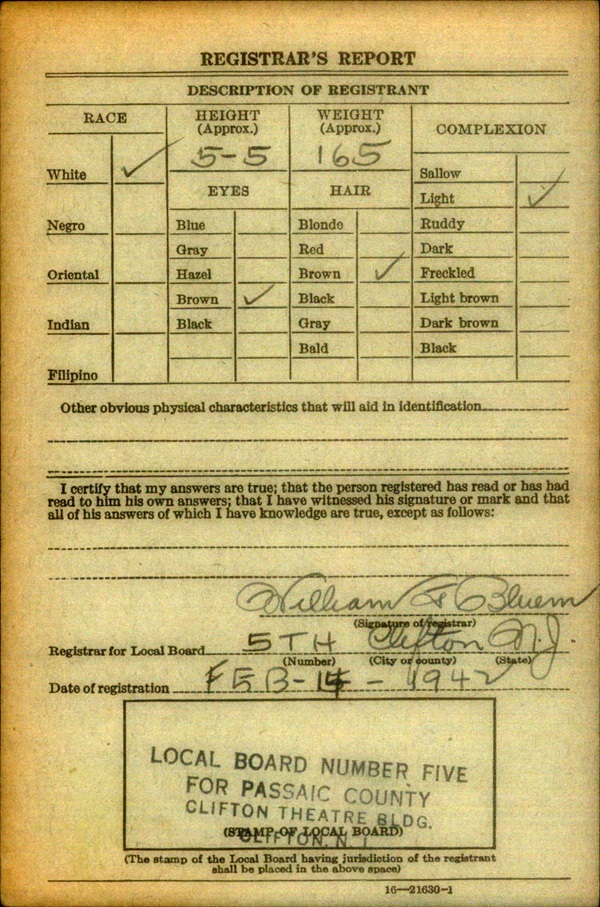 REGISTRAR'S REPORT
DESCRIPTION OF REGISTRANT
RACE
HEIGHT
(Approx.)
5-5
WEIGHT
(Approx.)
165
COMPLEXION
White ✓
Negro
Oriental
Indian
Filipino
EYES
Blue
Gray
Hazel
Brown ✓
Black
HAIR
Blonde
Red
Brown ✓
Black
Gray
Bald
Sallow
Light ✓
Ruddy
Dark
Freckled
Light brown
Dark brown
Black
Other obvious physical characteristics that will aid in identification
I certify that my answers are true; that the person registered has read or has had
read to him his own answers; that I have witnessed his signature or mark and that
all of his answers of which I have knowledge are true, except as follows:
William F Bluem
(Signature of registrar)
Registrar for Local Board 5TH Clifton N.J.
(Number) (City or county) (State)
Date of registration FEB-14-1942
LOCAL BOARD NUMBER FIVE
FOR PASSAIC COUNTY
CLIFTON THEATRE BLDG.
(STAMP OF LOCAL BOARD)
CLIFTON, N. J.
(The stamp of the Local Board having jurisdiction of the registrant
shall be placed in the above space)
16—21630-1